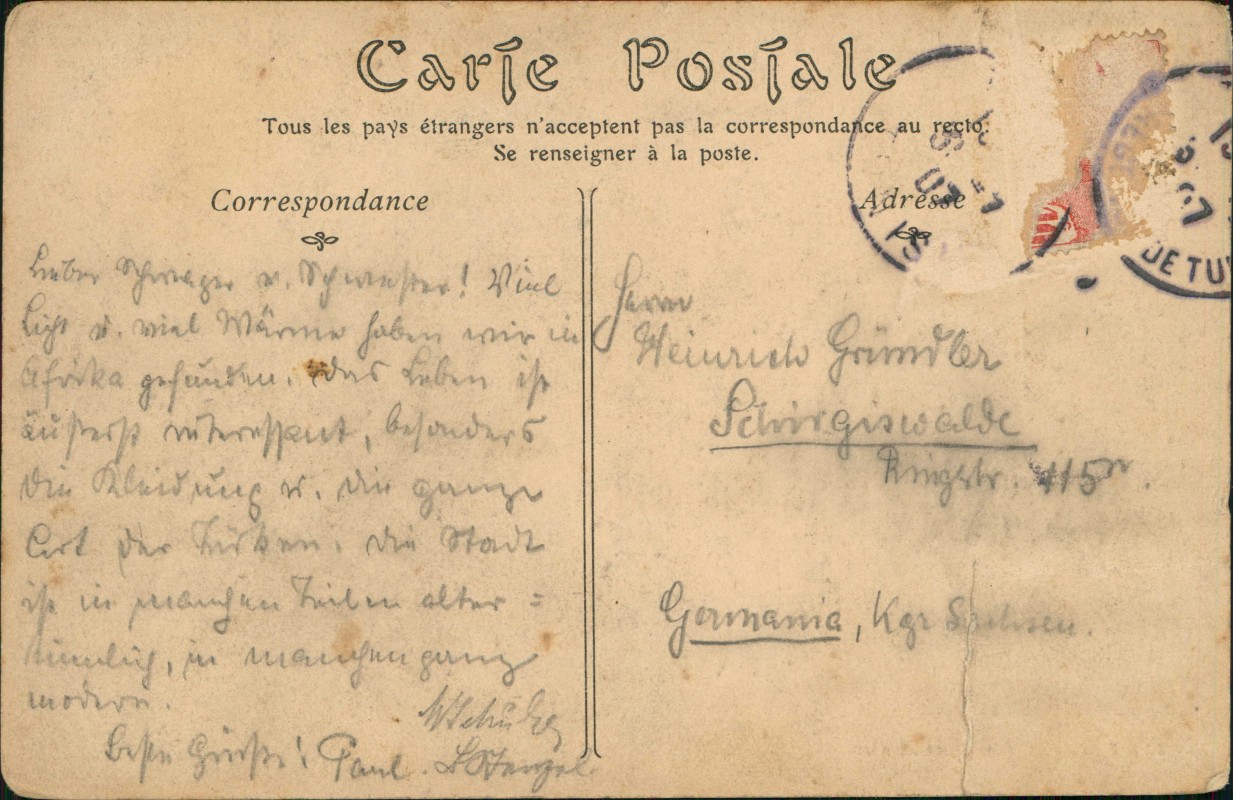 Carte Postale
Tous les pays étrangers n'acceptent pas la correspondance au recto.
Se renseigner à la poste.
Correspondance
Adresse
Lieber Schwager u. Schwester! Viel
Licht u. viel Wärme haben wir in
Afrika gefunden. Das Leben ist
äußerst interessant, besonders
die Kleidung u. die ganze
Art der Türken. Die Stadt
ist in manchen Teilen alter=
tümlich, in manchen ganz
modern.
Beste Grüße! Paul.
Herrn
Heinrich Gründler
Schirgiswalde
Ringstr. 115
Germania, Kgr Sachsen.
DE TU